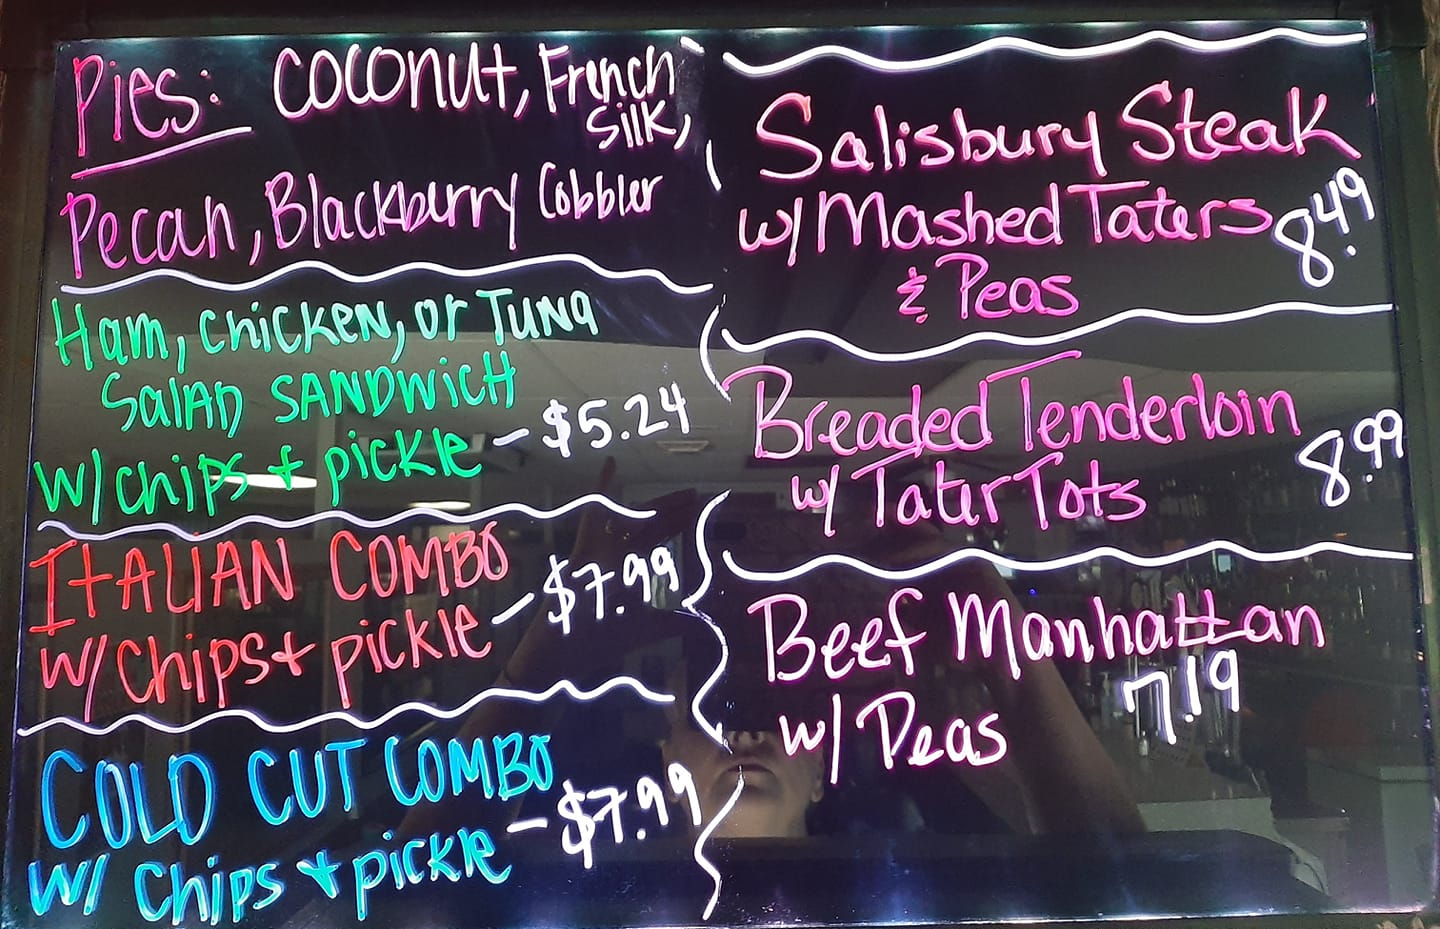 Pies: Coconut, French
Silk,
Pecan, Blackberry Cobbler
Ham, Chicken, or Tuna
Salad SANDWICH
w/chips + pickle - $5.24
ItALIAN COMBO
w/Chips + pickle - $7.99
COLD CUT COMBO
w/ Chips + pickle - $7.99
Salisbury Steak
w/ Mashed Taters 8.49
& Peas
Breaded Tenderloin
w/ Tater Tots 8.99
Beef Manhattan
7.19
w/ Peas